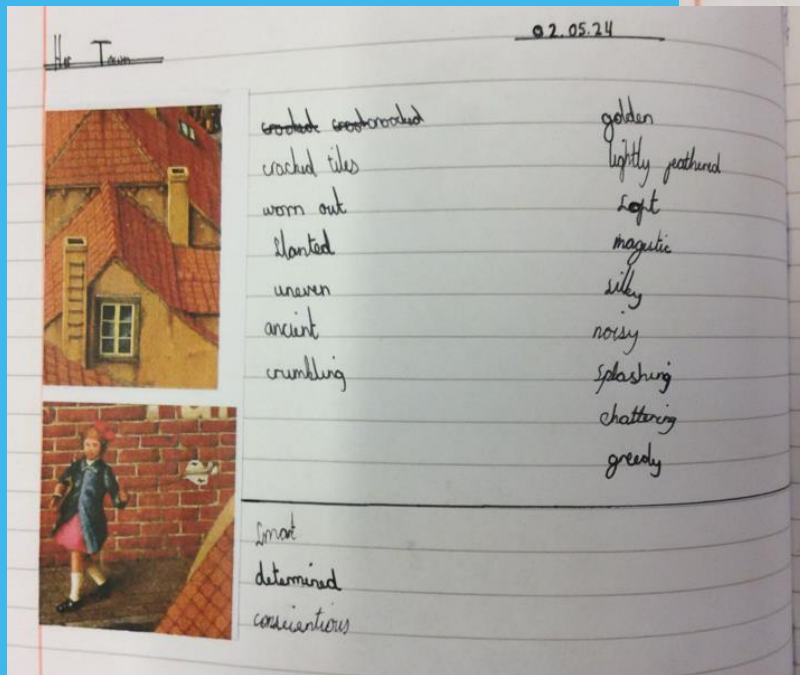 Her Town
02.05.24
crooked
cracked tiles
worn out
slanted
uneven
ancient
crumbling
golden
lightly feathered
soft
magestic
silky
noisy
splashing
chattering
greedy
smart
determined
conscientious